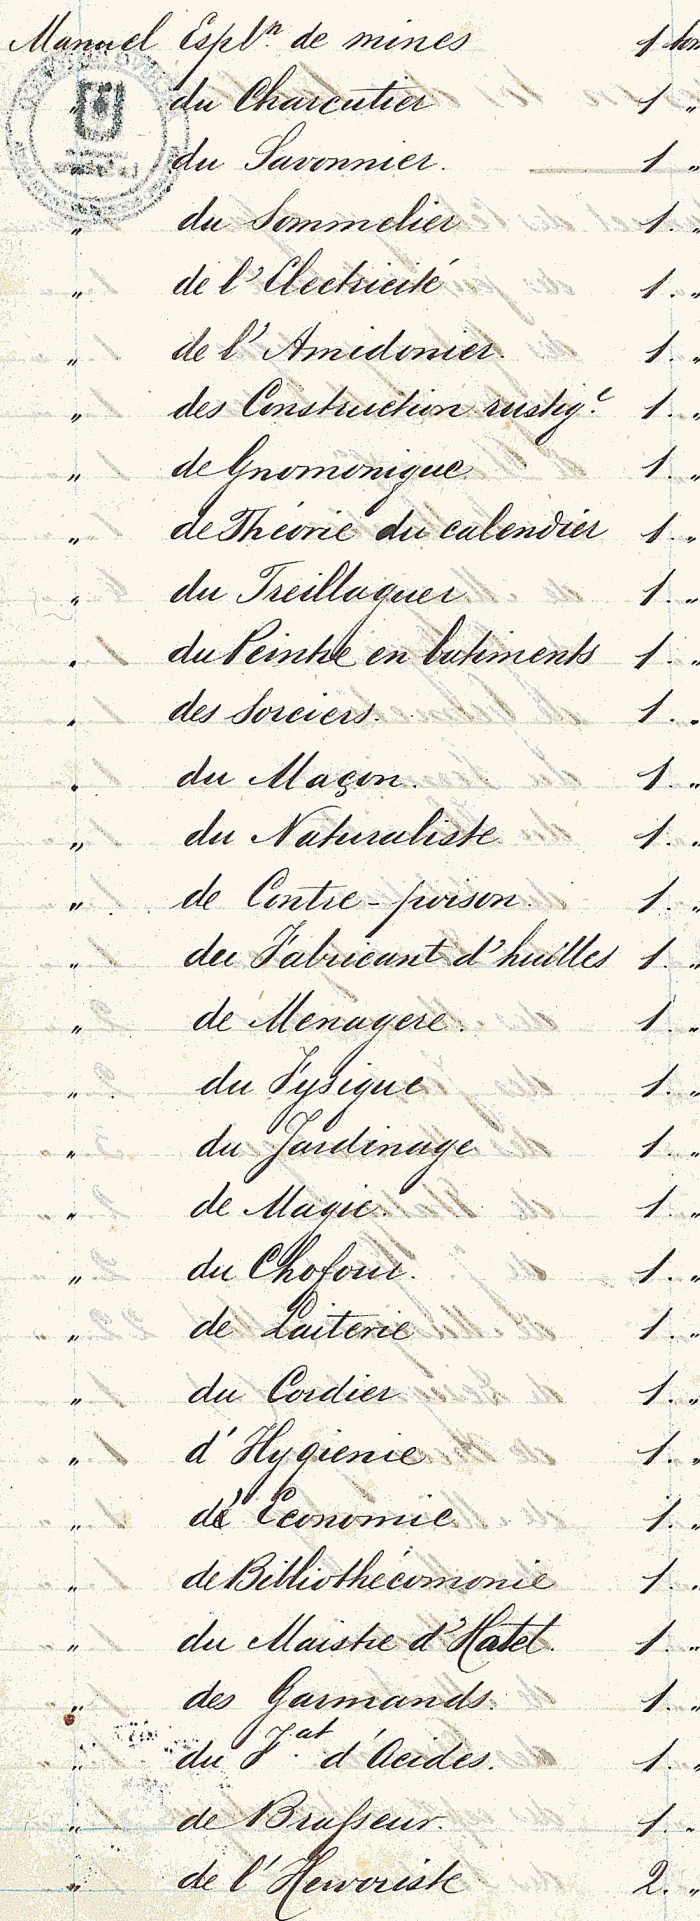 Manuel Espl.ⁿ de mines 1 tom
" du Charcutier 1 "
" du Savonnier. 1 "
" du Sommelier 1. "
" de l'Electricité 1. "
" de l'Amidonier. 1. "
" des Construction rustiq.e 1. "
" de Gnomonique 1. "
" de Théorie du calendier 1. "
" du Treillaguer 1. "
" du Peintre en batiments 1. "
" des Sorciers. 1. "
" du Maçon. 1. "
" du Naturaliste 1. "
" de Contre-poison. 1. "
" du Fabricant d'huilles 1. "
" de Menagere. 1. "
" du Fysique 1. "
" du Jardinage 1. "
" de Magie. 1. "
" du Chofour. 1. "
" de Laiterie 1. "
" du Cordier 1. "
" d'Hygienie 1. "
" de Economie 1. "
" de Bibliothécomonie 1. "
" du Maistre d'Hatel. 1. "
" des Garmands. 1. "
" du F.at d'Acides. 1. "
" de Brasseur. 1. "
" de l'Hervoriste 2. "